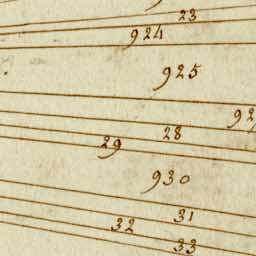 23
924
925
28
29
930
31
32
33